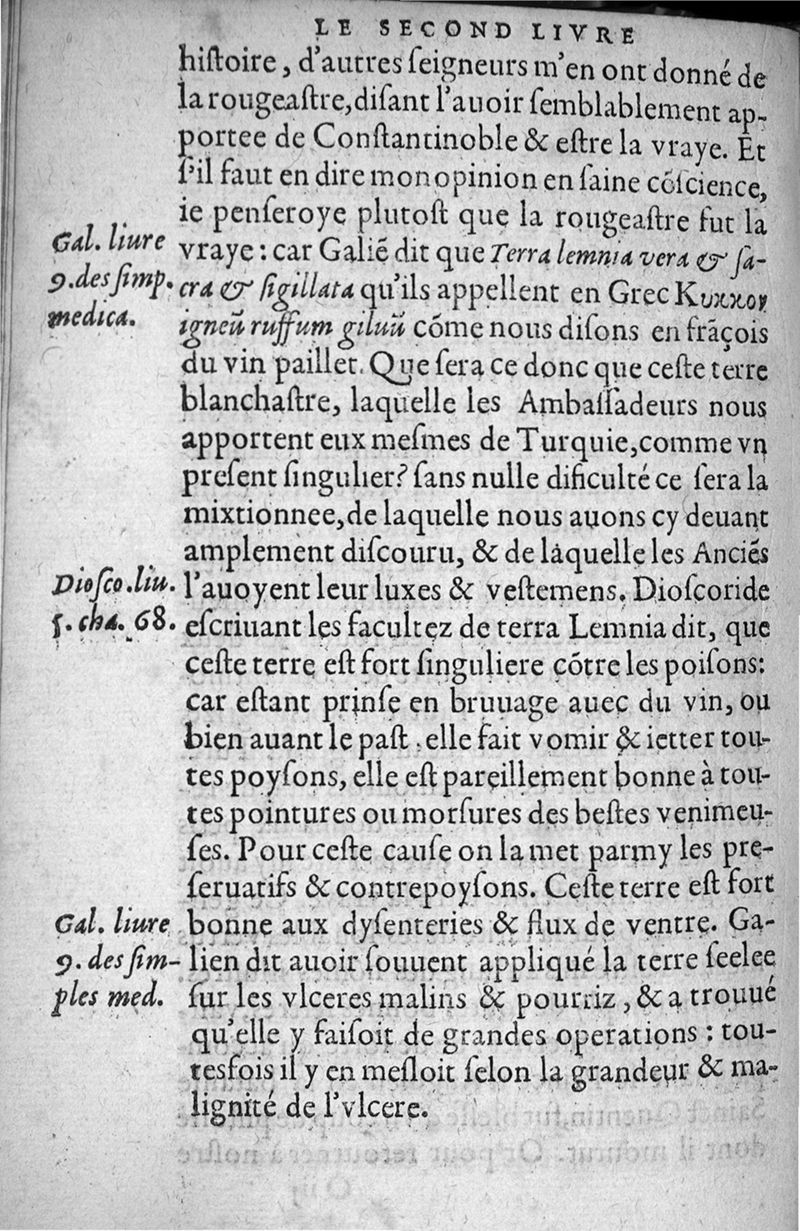 LE SECOND LIVRE
hiſtoire, d'autres ſeigneurs m'en ont donné de
la rougeaſtre, diſant l'auoir ſemblablement ap-
portee de Conſtantinoble & eſtre la vraye. Et
ſ'il faut en dire mon opinion en ſaine cõſcience,
ie penſeroye plutoſt que la rougeaſtre fut la
Gal. liure
vraye : car Galiẽ dit que Terra lemnia vera & ſa-
9. des ſimp.
cra & ſigillata qu'ils appellent en Grec Κυκκον
medica.
igneũ ruffum giluũ cõme nous diſons en frãçois
du vin paillet. Que ſera ce donc que ceſte terre
blanchaſtre, laquelle les Ambaſſadeurs nous
apportent eux meſmes de Turquie, comme vn
preſent ſingulier? ſans nulle dificulté ce ſera la
mixtionnee, de laquelle nous auons cy deuant
amplement diſcouru, & de laquelle les Anciẽs
Dioſco. liu.
l'auoyent leur luxes & veſtemens. Dioſcoride
5. cha. 68.
eſcriuant les facultez de terra Lemnia dit, que
ceſte terre eſt fort ſinguliere cõtre les poiſons:
car eſtant prinſe en bruuage auec du vin, ou
bien auant le paſt, elle fait vomir & ietter tou-
tes poyſons, elle eſt pareillement bonne à tou-
tes pointures ou morſures des beſtes venimeu-
ſes. Pour ceſte cauſe on la met parmy les pre-
ſeruatifs & contrepoyſons. Ceſte terre eſt fort
Gal. liure
bonne aux dyſenteries & flux de ventre. Ga-
9. des ſim-
lien dit auoir ſouuent appliqué la terre ſeelee
ples med.
ſur les vlceres malins & pourriz, & a trouué
qu'elle y faiſoit de grandes operations : tou-
tesfois il y en meſloit ſelon la grandeur & ma-
lignité de l'vlcere.